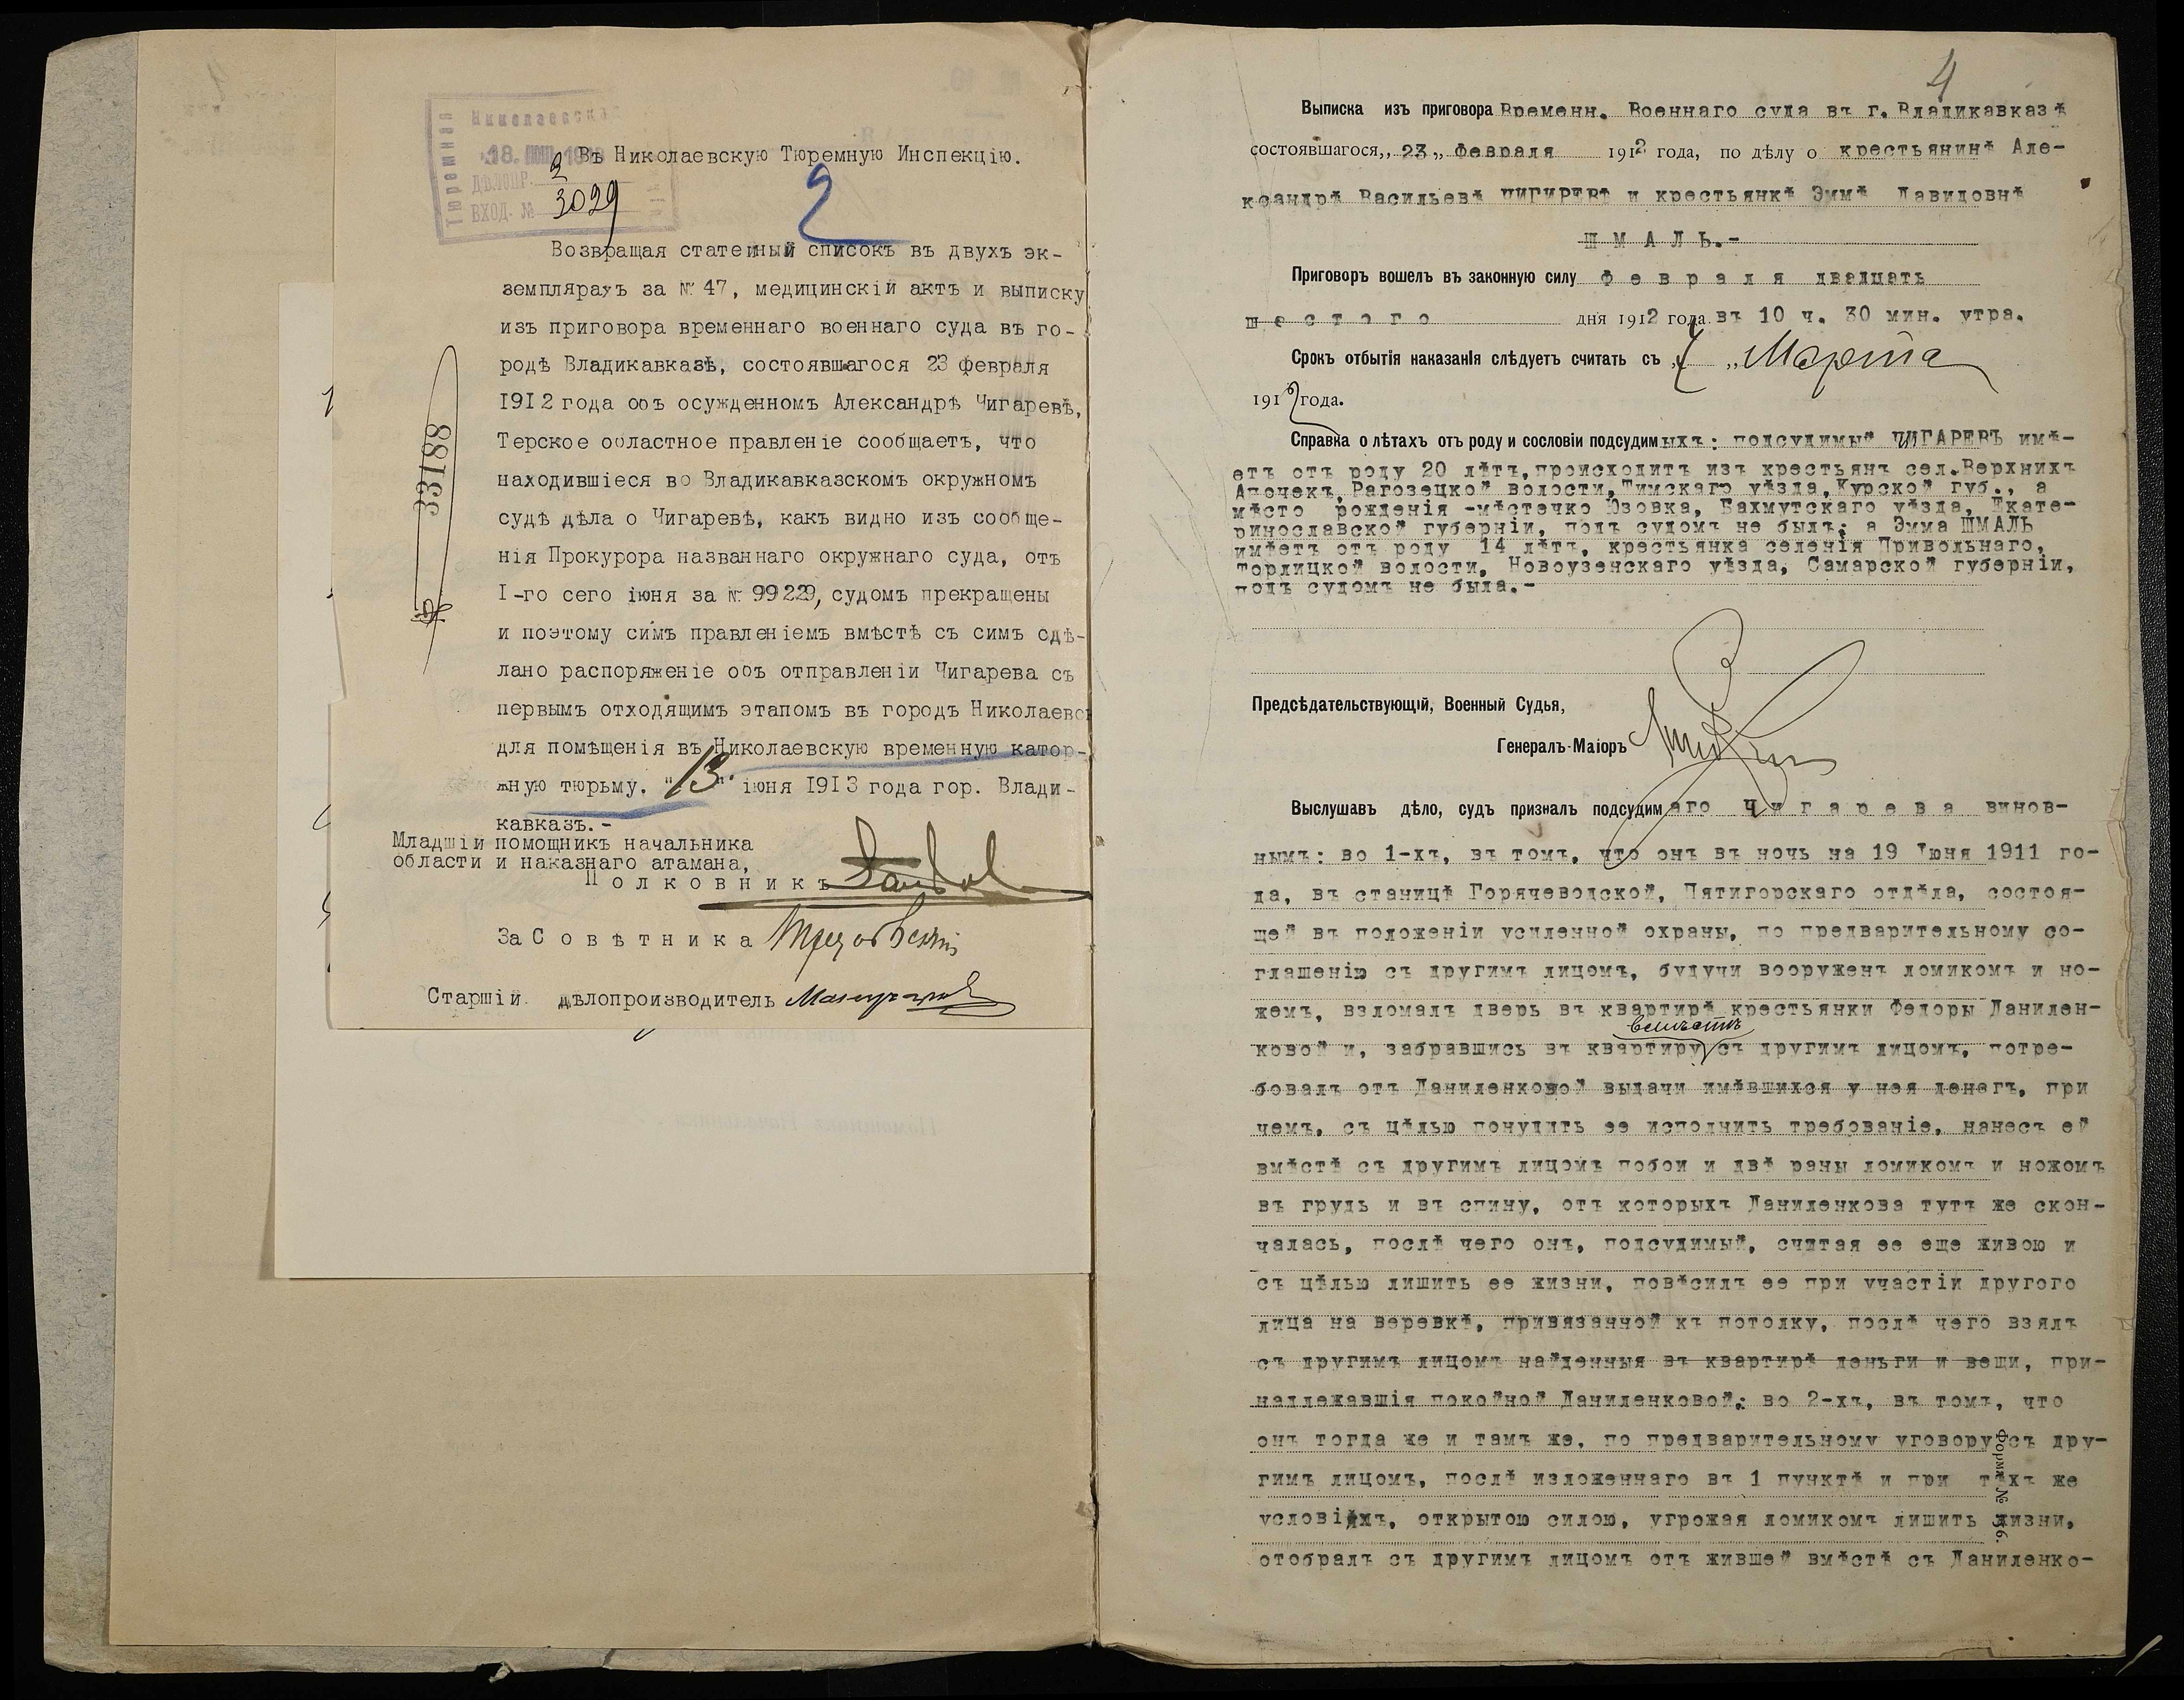 Николаевская
Тюремная
18. ІЮН. 1913
ДѢЛОПР. 2
ВХОД. № 3029
Въ Николаевскую Тюремную Инспекцію.
2
Возвращая статейный списокъ въ двухъ эк-
земплярахъ за № 47, медицинскій актъ и выписку
изъ приговора временнаго военнаго суда въ го-
родѣ Владикавказѣ, состоявшагося 23 февраля
1912 года объ осужденномъ Александрѣ Чигаревѣ,
Терское областное правленіе сообщаетъ, что
находившіеся во Владикавказскомъ окружномъ
судѣ дѣла о Чигаревѣ, какъ видно изъ сообще-
нія Прокурора названнаго окружнаго суда, отъ
I-го сего іюня за № 99229, судомъ прекращены
и поэтому симъ правленіемъ вмѣстѣ съ симъ сдѣ-
лано распоряженіе объ отправленіи Чигарева съ
первымъ отходящимъ этапомъ въ городъ Николаевс
для помѣщенія въ Николаевскую временную катор-
жную тюрьму. "13" іюня 1913 года гор. Влади-
кавказъ.-
33188
Младшій помощникъ начальника
области и наказнаго атамана,
Полковникъ
За Совѣтника
Старшій дѣлопроизводитель
4
Выписка изъ приговора Временн. Военнаго суда въ г. Владикавказѣ
состоявшагося „ 23 „ февраля 1912 года, по дѣлу о крестьянинѣ Але-
ксандрѣ Васильевѣ ЧИГИРЕВѢ и крестьянкѣ Эммѣ Давидовнѣ
ШМАЛЬ.-
Приговоръ вошелъ въ законную силу февраля двадцать
шестого дня 1912 года въ 10 ч. 30 мин. утра.
Срокъ отбытія наказанія слѣдуетъ считать съ „ „ Марта
1912 года.
Справка о лѣтахъ отъ роду и сословіи подсудимыхъ: подсудимый ЧИГАРЕВЪ имѣ-
етъ отъ роду 20 лѣтъ, происходитъ изъ хрестьянъ сел. Верхнихъ
Апочекъ, Рагозецкой волости, Тимскаго уѣзда, Курской губ., а
мѣсто рожденія -мѣстечко Юзовка, Бахмутскаго уѣзда, Екате-
ринославской губерніи, подъ судомъ не былъ; а Эмма ШМАЛЬ
имѣетъ отъ роду 14 лѣтъ, крестьянка селенія Привольнаго,
Торлицкой волости, Новоузенскаго уѣзда, Самарской губерніи,
подъ судомъ не была.-
Предсѣдательствующій, Военный Судья,
Генералъ-Маіоръ
Выслушавъ дѣло, судъ призналъ подсудимаго Чигарева винов-
нымъ: во 1-хъ, въ томъ, что онъ въ ночь на 19 Іюня 1911 го-
да, въ станицѣ Горячеводской, Пятигорскаго отдѣла, состоя-
щей въ положеніи усиленной охраны, по предварительному со-
глашенію съ другимъ лицомъ, будучи вооруженъ ломикомъ и но-
жемъ, взломалъ дверь въ квартирѣ крестьянки Федоры Данилен-
вмѣстѣ
ковой и, забравшись въ квартиру съ другимъ лицомъ, потре-
бовалъ отъ Даниленковой выдачи имѣвшихся у нея денегъ, при
чемъ, съ цѣлью понудить ее исполнить требованіе, нанесъ ей
вмѣстѣ съ другимъ лицомъ побои и двѣ раны ломикомъ и ножомъ
въ грудь и въ спину, отъ которыхъ Даниленкова тутъ же скон-
чалась, послѣ чего онъ, подсудимый, считая ее еще живою и
съ цѣлью лишить ее жизни, повѣсилъ ее при участіи другого
лица на веревкѣ, привязанной къ потолку, послѣ чего взялъ
съ другимъ лицомъ найденныя въ квартирѣ деньги и вещи, при-
надлежавшія покойной Даниленковой; во 2-хъ, въ томъ, что
онъ тогда же и тамъ же, по предварительному уговору съ дру-
гимъ лицомъ, послѣ изложеннаго въ 1 пунктѣ и при тѣхъ же
условіяхъ, открытою силою, угрожая ломикомъ лишить жизни,
отобралъ съ другимъ лицомъ отъ жившей вмѣстѣ съ Даниленко-
Форма № 56.